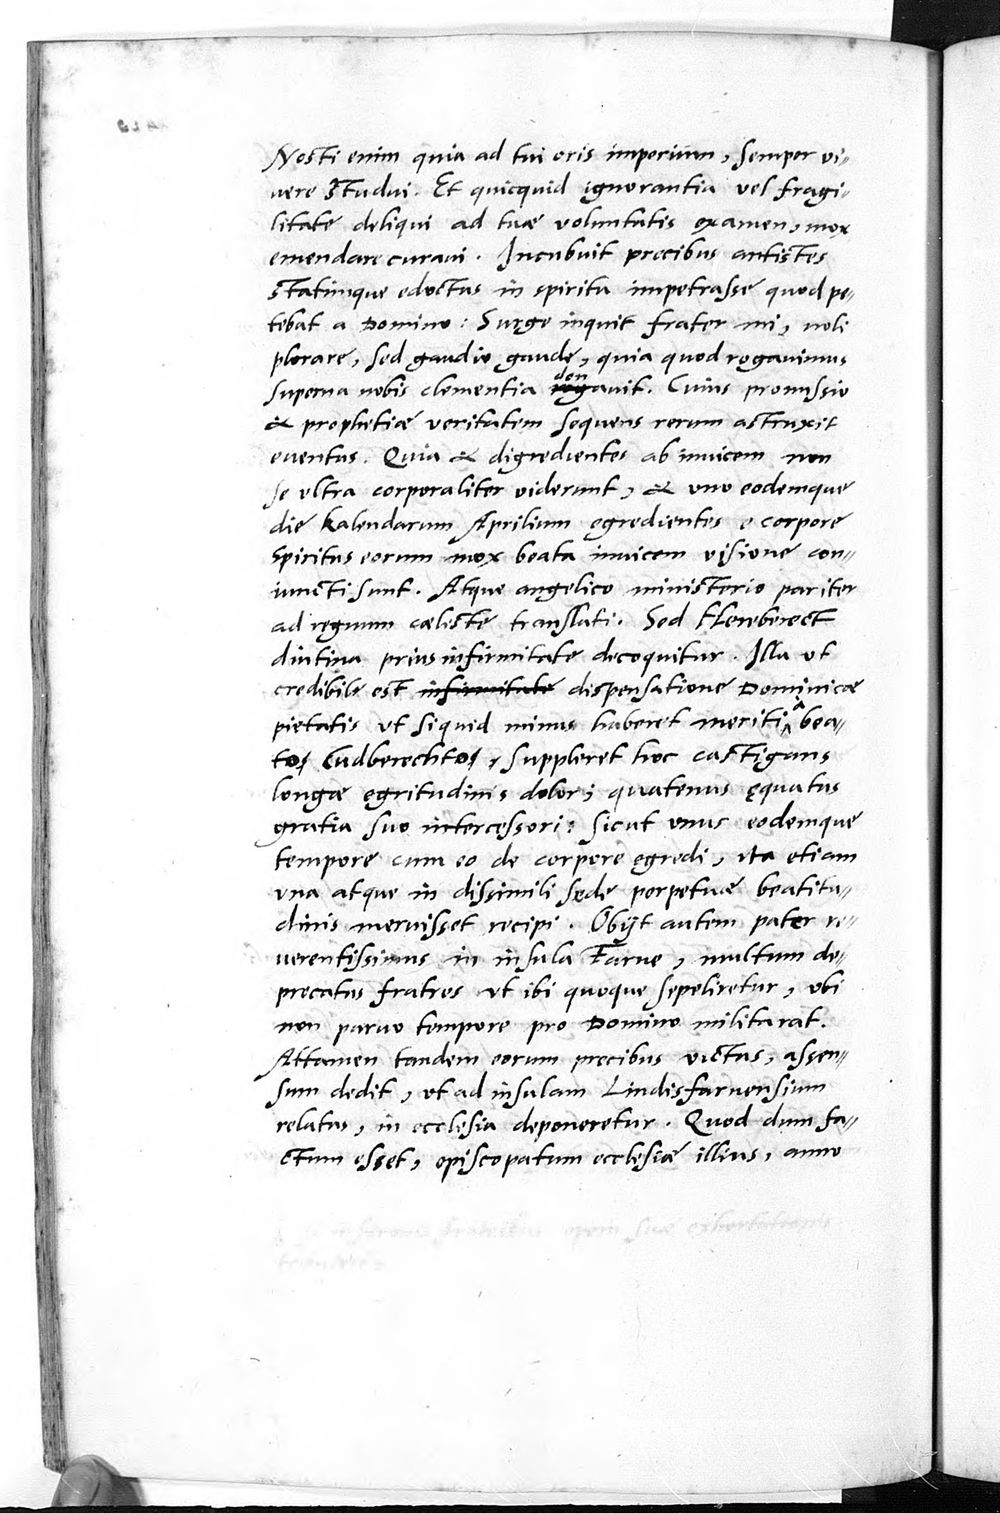 Nosti enim quia ad tui oris imperium, semper vi-
uere studui. Et quicquid ignorantia vel fragi-
litate deliqui ad tuæ voluntatis examen, mox
emendare curaui. Incubuit precibus antistes
statimque edoctus in spiritu impetrasse quod pe-
tebat a Domino: Surge inquit frater mi, noli
plorare, sed gaudio gaude, quia quod rogauimus
superna nobis clementia donauit. Cuius promissio
& prophetiæ veritatem sequens rerum astruxit
euentus. Quia & digredientes ab inuicem non
se vltra corporaliter viderunt, & vno eodemque
die Kalendarum Aprilium egredientes e corpore
spiritus eorum mox beata inuicem visione con-
iuncti sunt. Atque angelico ministerio pariter
ad regnum cæleste translati. Sed Hereberect
diutina prius infirmitate decoquitur. Illa vt
credibile est infirmitate dispensatione Dominicæ
pietatis vt siquid minus haberet meriti a bea-
to Cudberechto, suppleret hoc castigans
longæ egritudinis dolor; quatenus equatus
gratia suo intercessori: sicut vnus eodemque
tempore cum eo de corpore egredi, ita etiam
vna atque in dissimili sede perpetuæ beatitu-
dinis meruisset recipi. Obijt autem pater re-
uerentissimus in insula Farne, multum de-
precatus fratres vt ibi quoque sepeliretur, vbi
non paruo tempore pro Domino militarat.
Attamen tandem eorum precibus victus, assen-
sum dedit, vt ad insulam Lindisfarnensium
relatus, in ecclesia deponeretur. Quod dum fa-
ctum esset, episcopatum ecclesiæ illius, anno